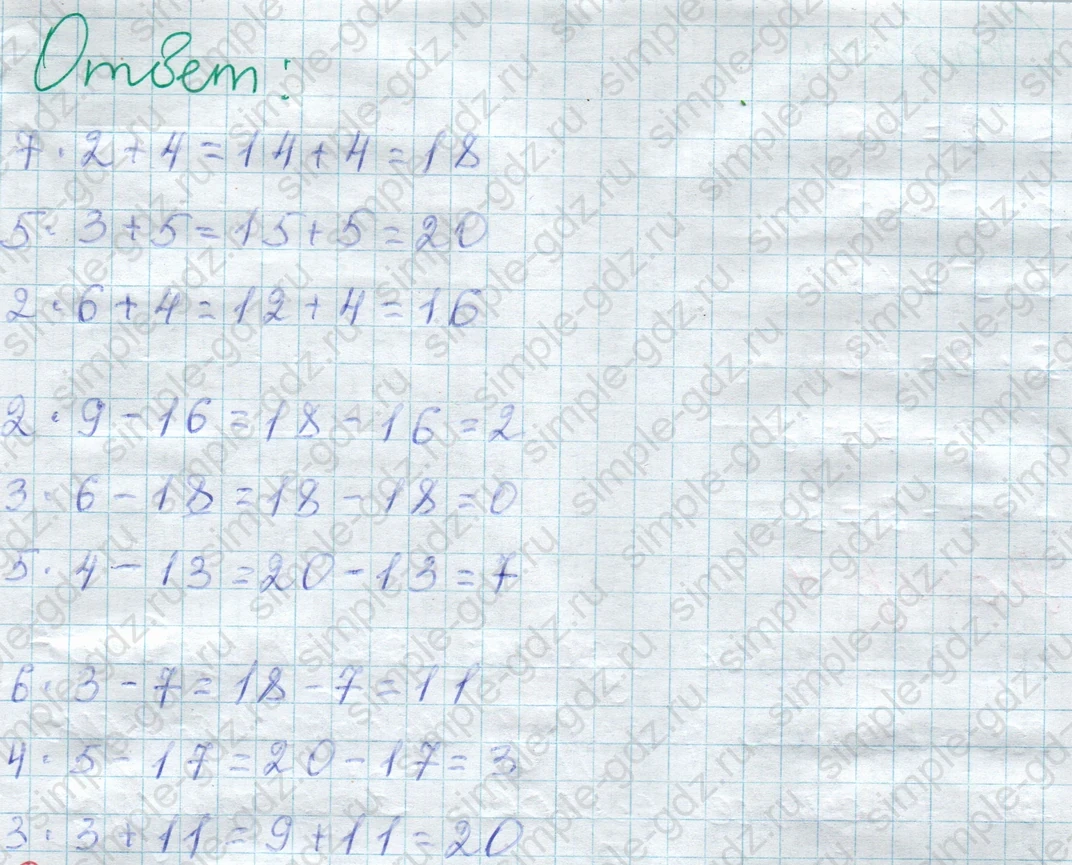 Ответ:
7 · 2 + 4 = 14 + 4 = 18
5 · 3 + 5 = 15 + 5 = 20
2 · 6 + 4 = 12 + 4 = 16
2 · 9 - 16 = 18 - 16 = 2
3 · 6 - 18 = 18 - 18 = 0
5 · 4 - 13 = 20 - 13 = 7
6 · 3 - 7 = 18 - 7 = 11
4 · 5 - 17 = 20 - 17 = 3
3 · 3 + 11 = 9 + 11 = 20
simple-gdz.ru